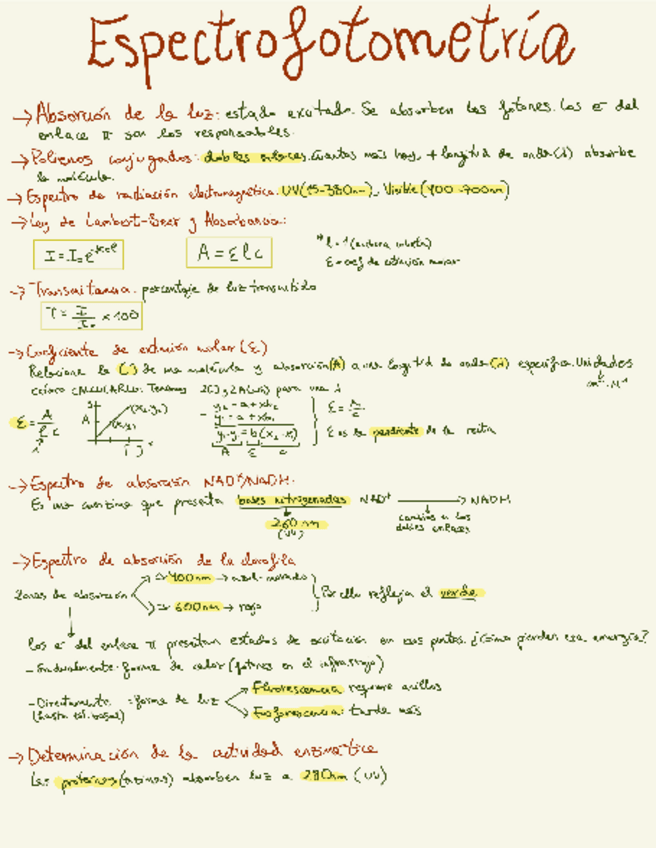 Espectrofotometría
→ Absorción de la luz: estado excitado. Se absorben los fotones. Los e⁻ del
enlace π son los responsables.
→ Polienos conjugados: dobles enlaces. Cuantos más hay, + longitud de onda (λ) absorbe
la molécula.
→ Espectro de radiación electromagnética: UV (15-380nm), Visible (400-700nm)
→ Ley de Lambert-Beer y Absorbancia:
A = ε l c
ε = coef de extinción molar
→ Transmitancia: porcentaje de luz transmitido
T = I/I₀ × 100
→ Coeficiente de extinción molar (ε)
Relaciona la [ ] de una molécula y absorción (A) a una longitud de onda (λ) específica. Unidades
CÓMO CALCULARLO: Tenemos 2[ ] y 2A(uds) para una λ
cm⁻¹ · M⁻¹
ε = A / l c
A
(x₂,y₂)
(x₁,y₁)
y₂ = a + xb₂
y₁ = a + xb₁
A ε c
ε = A/c
ε es la pendiente de la recta
→ Espectro de absorción NAD⁺/NADH:
Es una coenzima que presenta bases nitrogenadas NAD⁺ → NADH
260 nm
(UV)
cambios en los
dobles enlaces
→ Espectro de absorción de la clorofila
Zonas de absorción
≃ 400nm → azul-morado
≃ 600nm → rojo
Por ello reflejan el verde
Los e⁻ del enlace π presentan estados de excitación en esos puntos. ¿Cómo pierden esa energía?
- Gradualmente: forma de calor (fotones en el infrarrojo)
- Directamente: forma de luz
(hasta est. basal)
Fluorescencia: requiere anillos
Fosforescencia: tarda más
→ Determinación de la actividad enzimática
Las proteínas (enzimas) absorben luz a 280nm (UV)